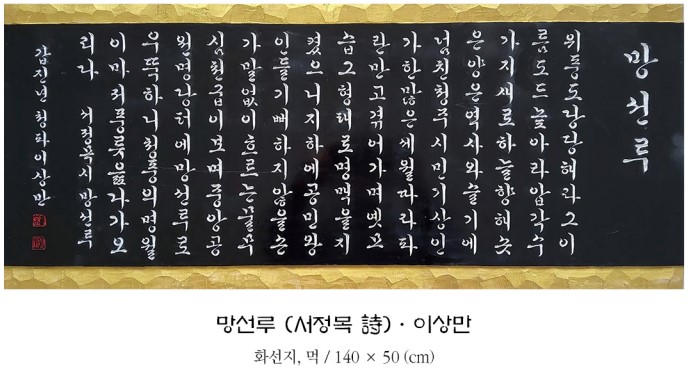 망선루
위풍도당당해라그이
름도드높아라압각수
가지새로하늘향해솟
은양은역사와슬기에
넘친청주시민기상인
가한많은세월따라파
란만고겪어가며옛모
습그형태로명맥을지
켰으니지하에공민왕
인들기뻐하지않을손
가말없이흐르는
심천굽이보며중앙공
원명당터에망선루로
우뚝하니청풍의명월
이마저풍 따라가오
리다 서정목시 망선루
갑진년 청파이상만
망선루 (서정목 詩) · 이상만
화선지, 먹 / 140 × 50 (cm)